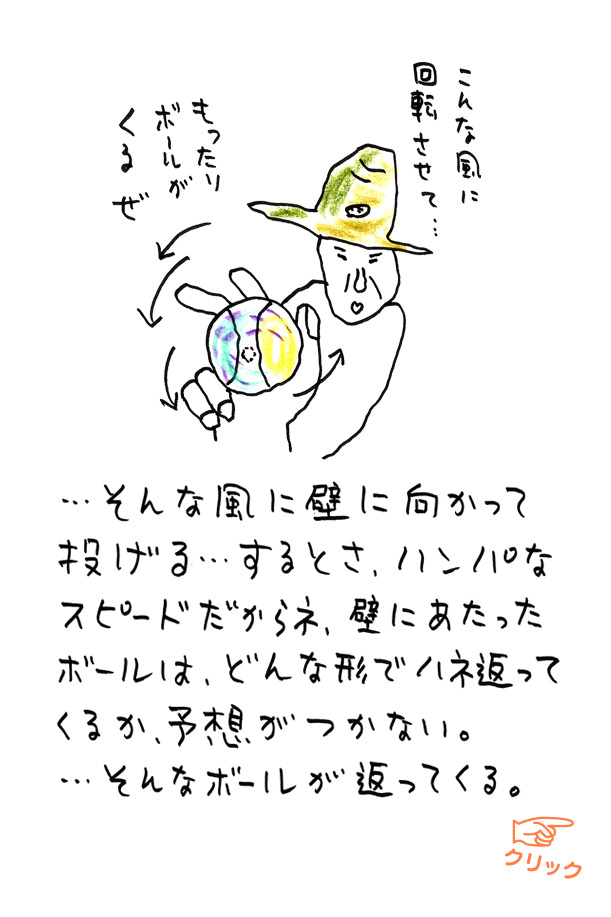 こんな風に
回転させて…
もったり
ボールが
くるぜ
…そんな風に壁に向かって
投げる…するとさ、ハンパな
スピードだからネ、壁にあたった
ボールは、どんな形でハネ返って
くるか、予想がつかない。
…そんなボールが返ってくる。
クリック